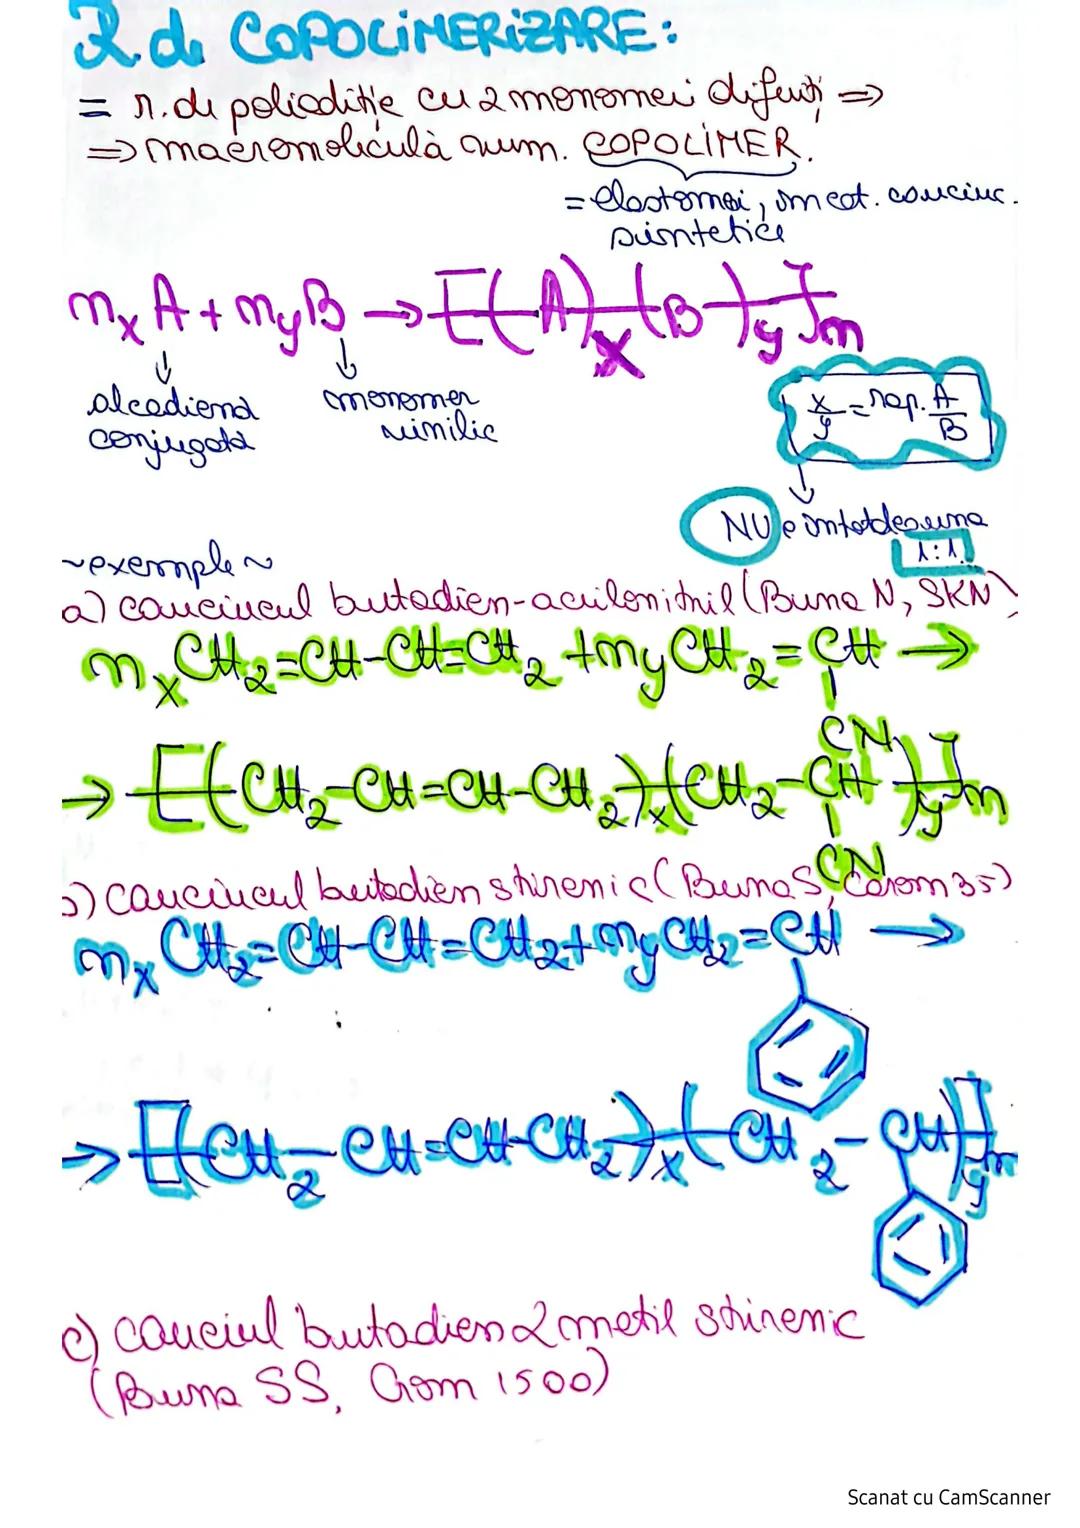 R. de COPOLIMERIZARE:
= r. de poliaditie cu 2 monomeri diferiți ⇒
⇒ macromoleculă num. COPOLIMER.
= elastomeri, în cat. cauciuc.
sintetice
nₓ A + nyB → [(A)ₓ(B)y]n
↓ ↓
alcadienă monomer
conjugată vinilic
x/y = rap. A/B
↓
NU e întotdeauna
1:1.
~exemple~
a) cauciucul butadien-acrilonitril (Buna N, SKN)
nₓ CH₂=CH-CH=CH₂ + ny CH₂=CH →
|
CN
→ [(CH₂-CH=CH-CH₂)ₓ(CH₂-CH)y]n
|
CN
b) cauciucul butadien stirenic (Buna S, Carom 35)
nₓ CH₂=CH-CH=CH₂ + ny CH₂=CH →
→ [(CH₂-CH=CH-CH₂)ₓ(CH₂-CH)y]n
c) cauciul butadien 2 metil stirenic
(Buna SS, Crom 1500)
Scanat cu CamScanner